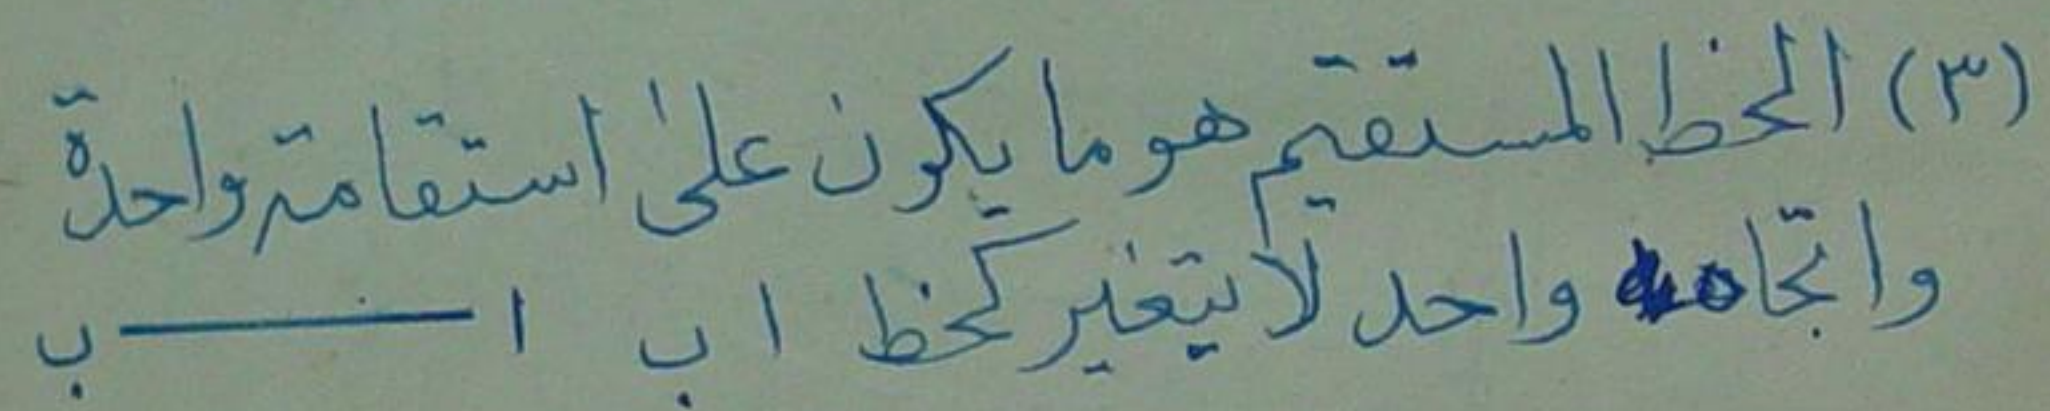 (٣) الخط المستقيم هو ما يكون على استقامة واحدة
واتّجاه واحد لا يتغير كخط ا ب ا ــــــ ب